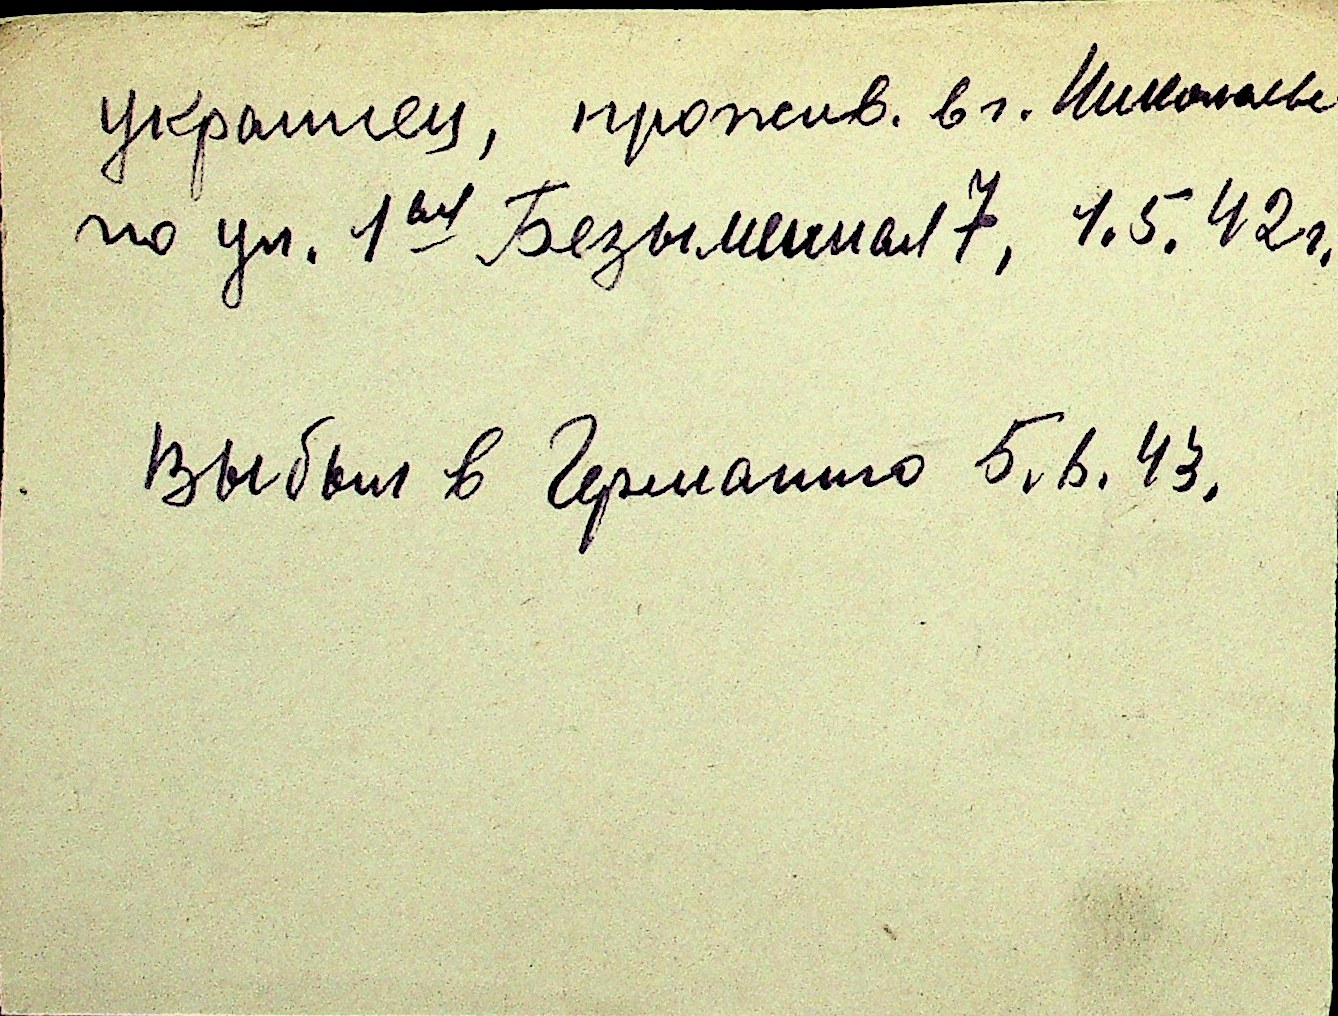 украинец, прожив. в г. Николаеве
по ул. 1ая Безыменная 7, 1.5.42г.
Выбыл в Германию 5.6.43.